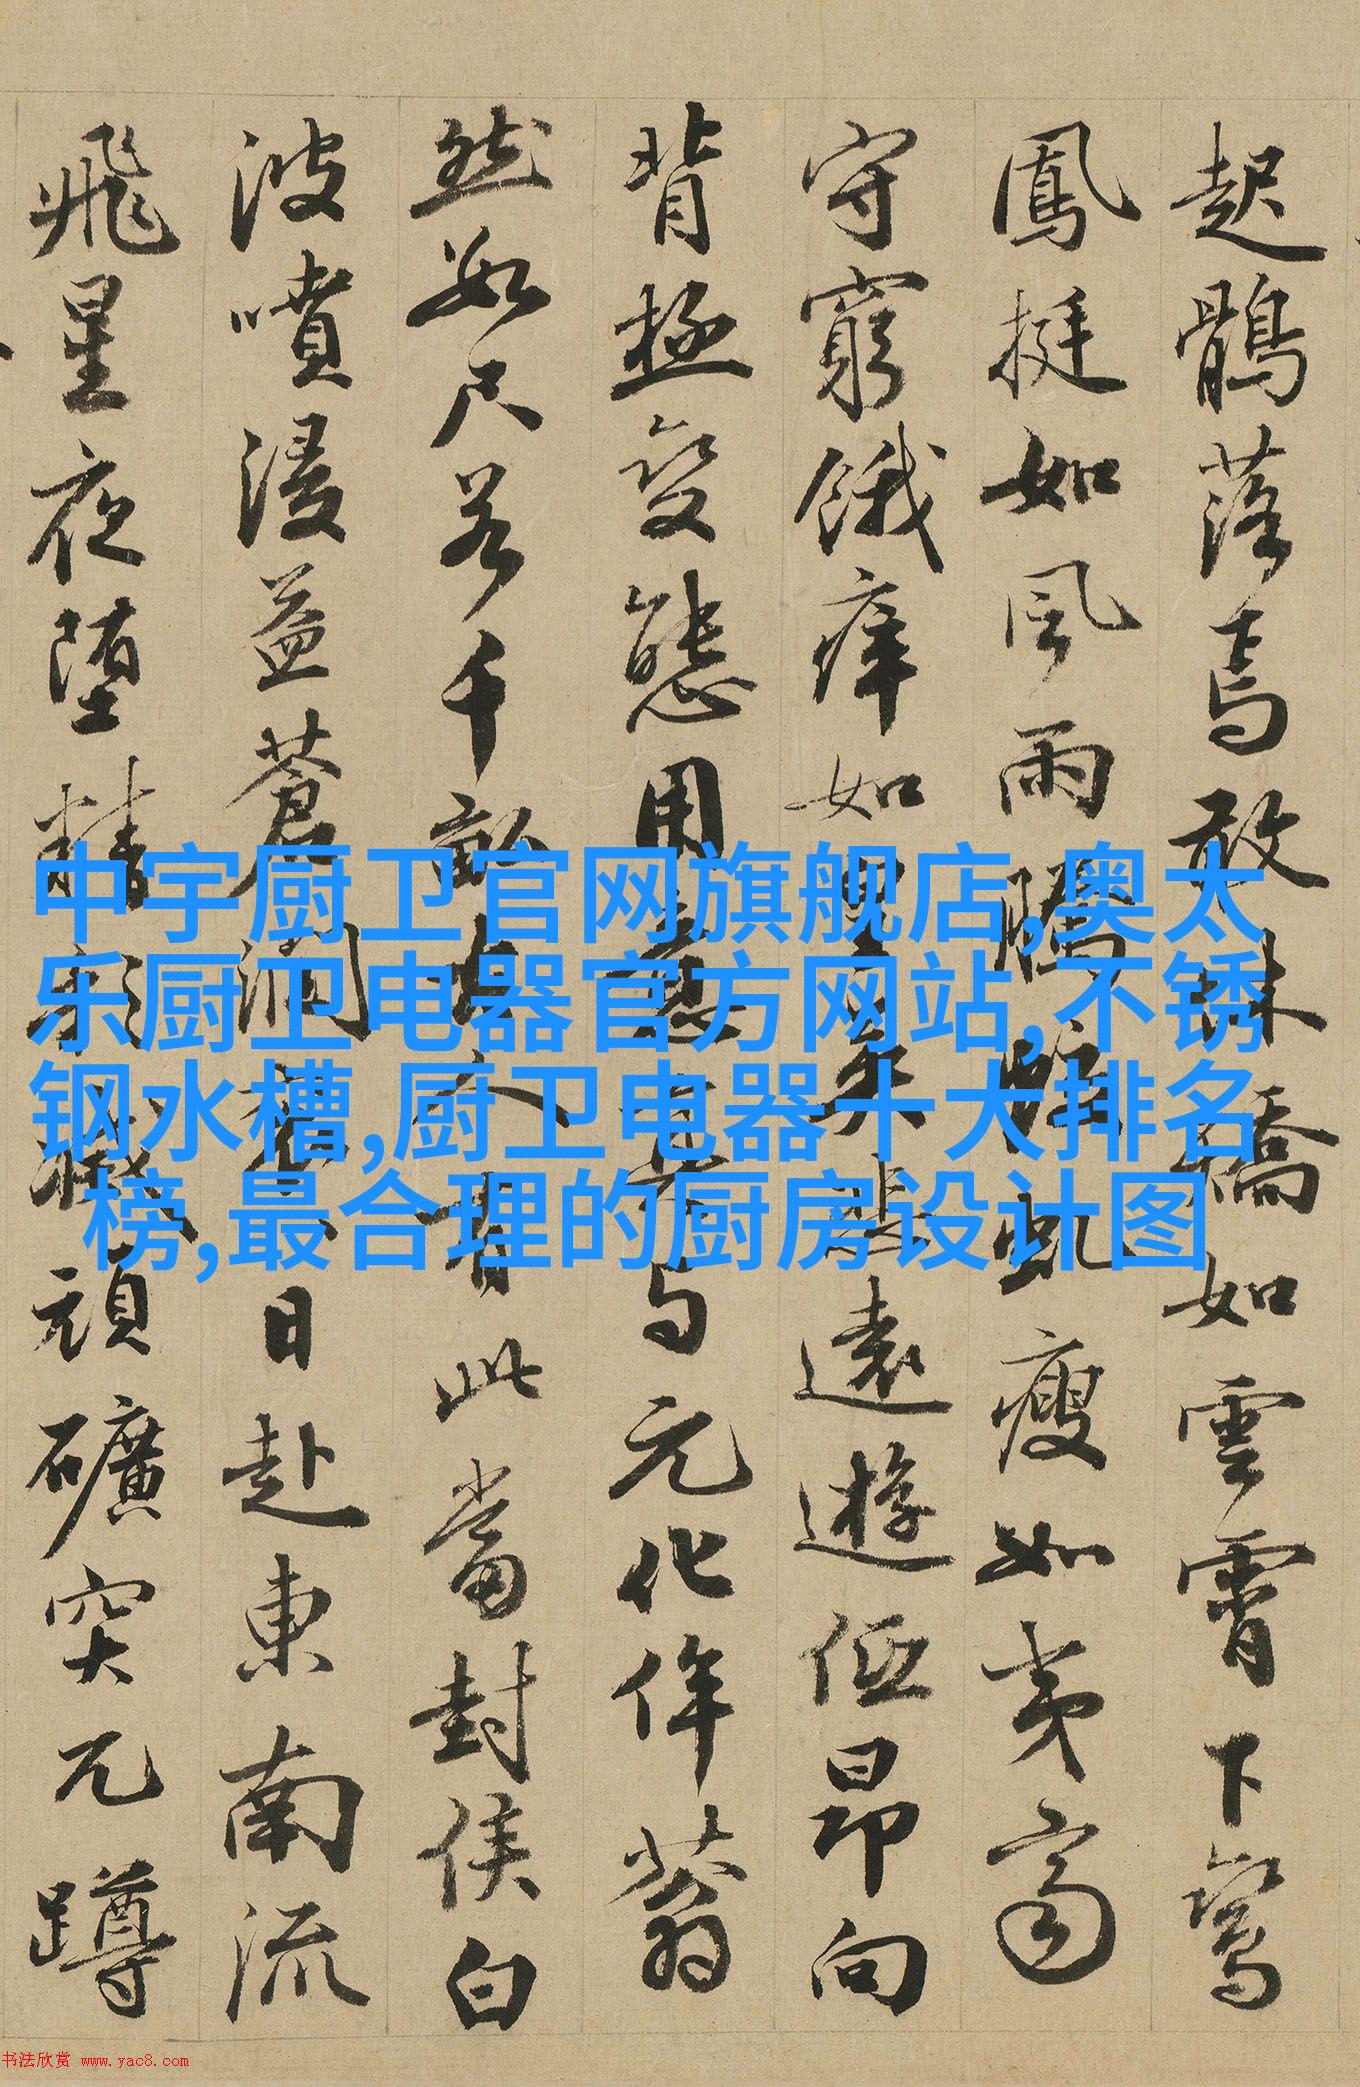 起鶻落焉敢
如雲霄下鸞
鳳挺如風雨
瘦如夷齊
守窮餓痒如
遠遊低昂向
背極變態用
与元化侔
然數尺若千畝
此當封侯白
波噴浸益蒼
日赴東南流
飛星夜堕精
頑礦突兀蹲
中宇厨卫官网旗舰店,奥太
乐厨卫电器官方网站,不锈
钢水槽,厨卫电器十大排名
榜,最合理的厨房设计图
书法欣赏 www.yac8.com